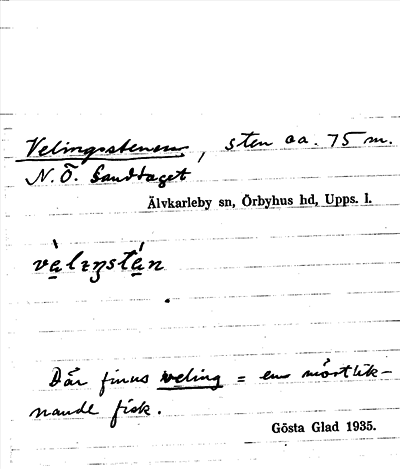 Velingsstenen, sten ca. 75 m.
N.Ö. Sandtaget
Älvkarleby sn, Örbyhus hd, Upps. l.
vè̱lıŋsté̱n
Där finns veling = en mörtlik-
nande fisk.
Gösta Glad 1935.